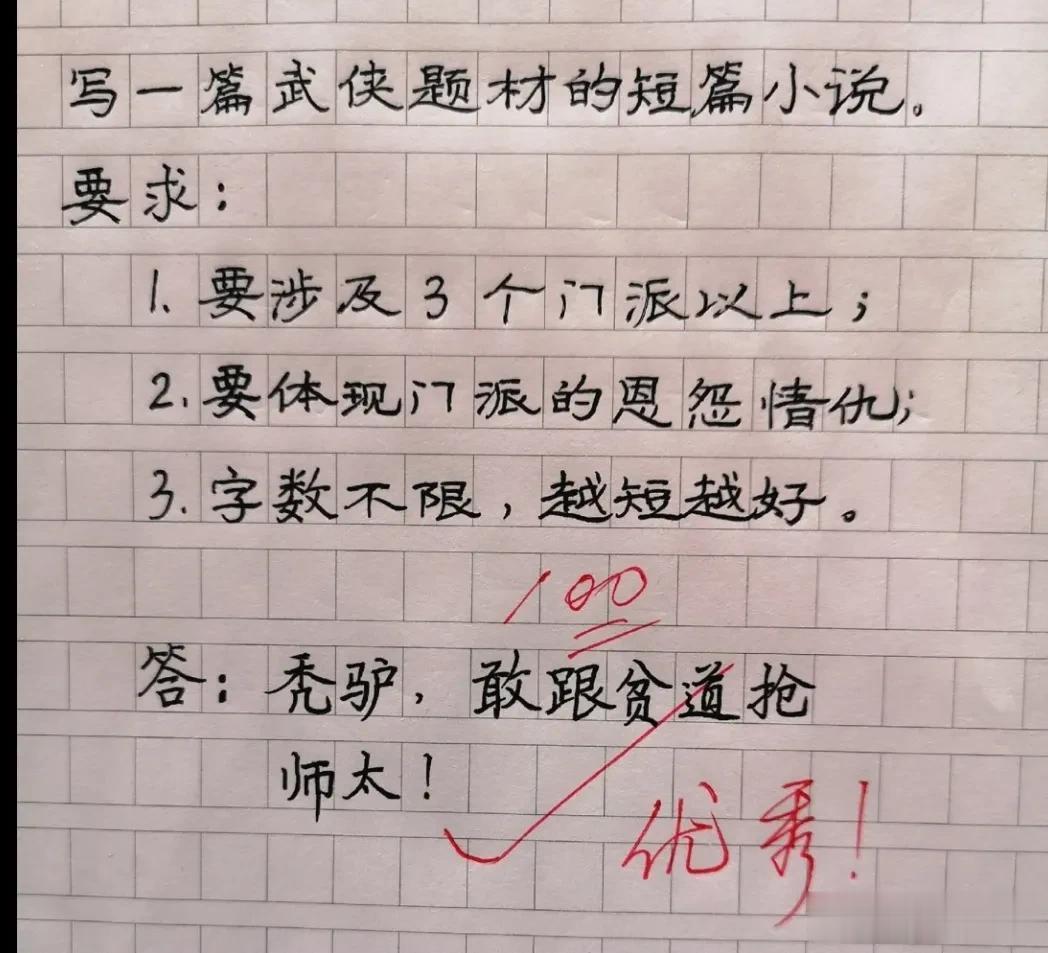 写一篇武侠题材的短篇小说。
要求：
1. 要涉及3个门派以上；
2. 要体现门派的恩怨情仇；
3. 字数不限，越短越好。
100
答：秃驴，敢跟贫道抢
师太！
优秀！